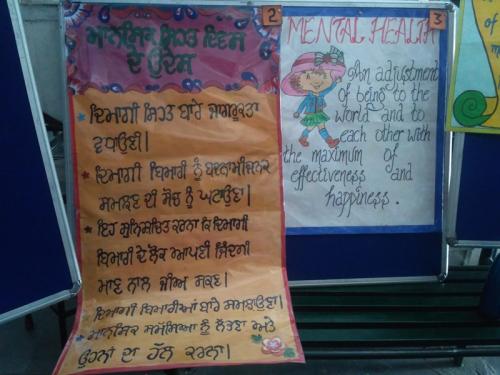 2
ਮਾਨਸਿਕ ਸਿਹਤ ਦਿਵਸ
ਦੇ ਉਦੇਸ਼
ਦਿਮਾਗੀ ਸਿਹਤ ਬਾਰੇ ਜਾਗਰੂਕਤਾ
ਵਧਾਉਣੀ।
ਦਿਮਾਗੀ ਬਿਮਾਰੀ ਨੂੰ ਬਦਨਾਮੀਜਨਕ
ਸਮਝਣ ਦੀ ਸੋਚ ਨੂੰ ਘਟਾਉਣਾ।
ਇਹ ਸੁਨਿਸ਼ਚਿਤ ਕਰਨਾ ਕਿ ਦਿਮਾਗੀ
ਬਿਮਾਰੀ ਦੇ ਲੋਕ ਆਪਣੀ ਜ਼ਿੰਦਗੀ
ਮਾਣ ਨਾਲ ਜੀਅ ਸਕਣ।
ਦਿਮਾਗੀ ਬਿਮਾਰੀਆਂ ਬਾਰੇ ਸਮਝਾਉਣਾ।
ਮਾਨਸਿਕ ਸਮੱਸਿਆ ਨੂੰ ਲੱਭਣਾ ਅਤੇ
ਉਹਨਾਂ ਦਾ ਹੱਲ ਕਰਨਾ।
3
MENTAL HEALTH
An adjustment
of being to the
world and to
each other with
the maximum of
effectiveness and
happiness.